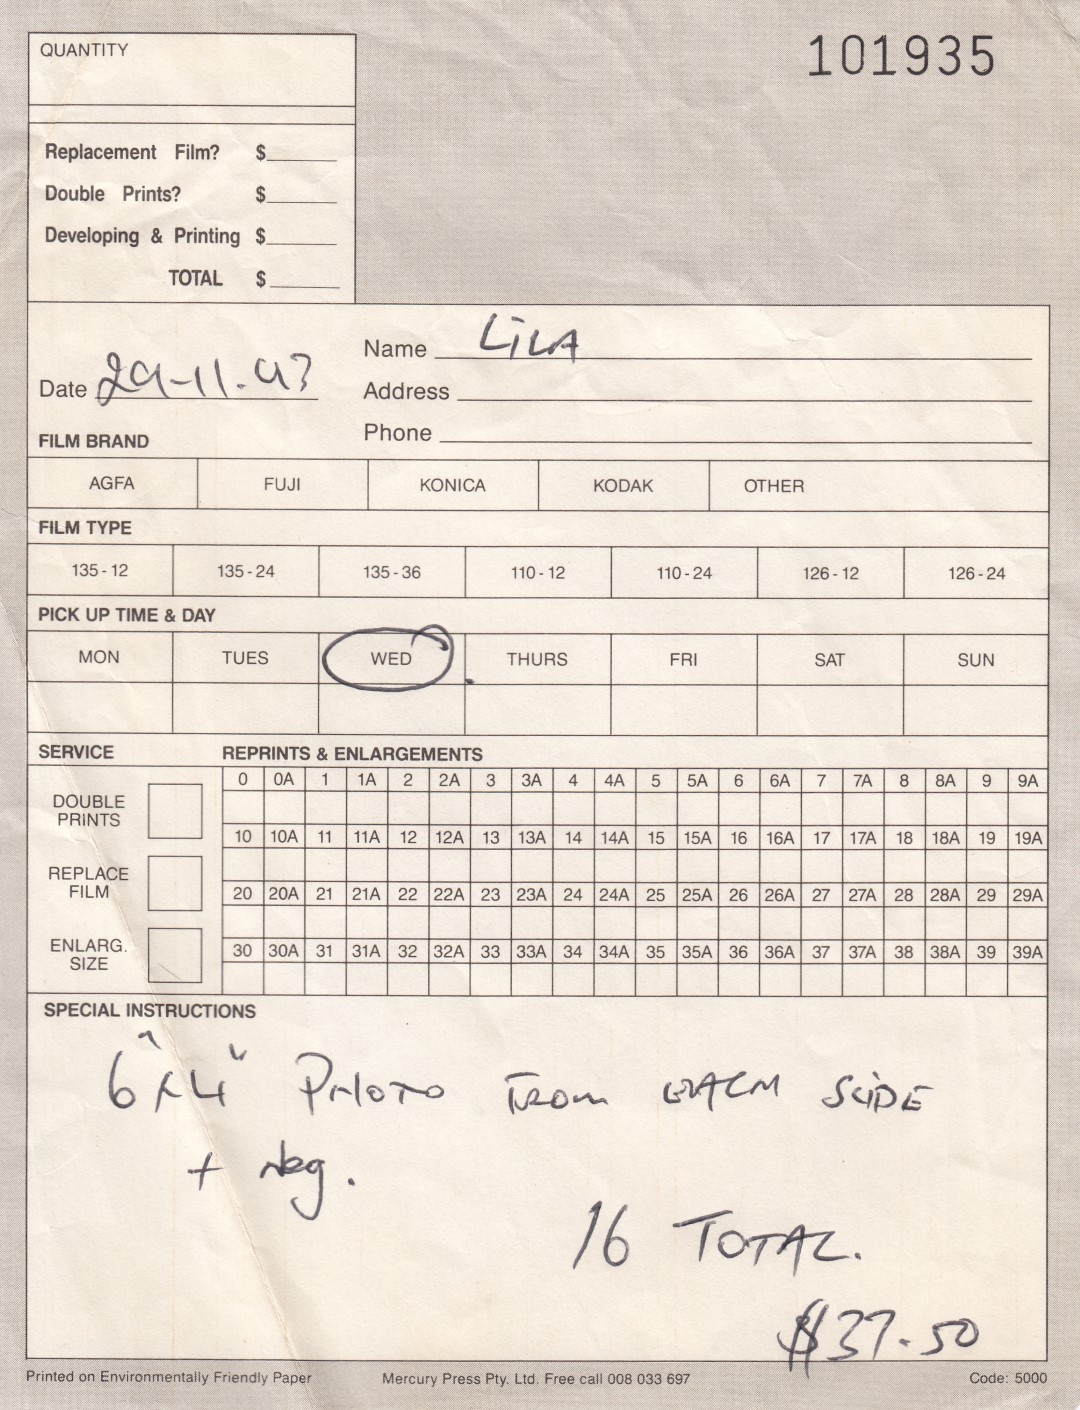 QUANTITY
101935
Replacement Film? $
Double Prints? $
Developing & Printing $
TOTAL $
Name LiLA
Date 29-11.93
Address
Phone
FILM BRAND
AGFA FUJI KONICA KODAK OTHER
FILM TYPE
135-12 135-24 135-36 110-12 110-24 126-12 126-24
PICK UP TIME & DAY
MON TUES WED THURS FRI SAT SUN
SERVICE REPRINTS & ENLARGEMENTS
0 0A 1 1A 2 2A 3 3A 4 4A 5 5A 6 6A 7 7A 8 8A 9 9A
DOUBLE
PRINTS
10 10A 11 11A 12 12A 13 13A 14 14A 15 15A 16 16A 17 17A 18 18A 19 19A
REPLACE
FILM
20 20A 21 21A 22 22A 23 23A 24 24A 25 25A 26 26A 27 27A 28 28A 29 29A
ENLARG.
SIZE
30 30A 31 31A 32 32A 33 33A 34 34A 35 35A 36 36A 37 37A 38 38A 39 39A
SPECIAL INSTRUCTIONS
6"x4" PHOTO FROM EACH SLIDE
+ Neg.
16 TOTAL.
$37.50
Printed on Environmentally Friendly Paper Mercury Press Pty. Ltd. Free call 008 033 697 Code: 5000